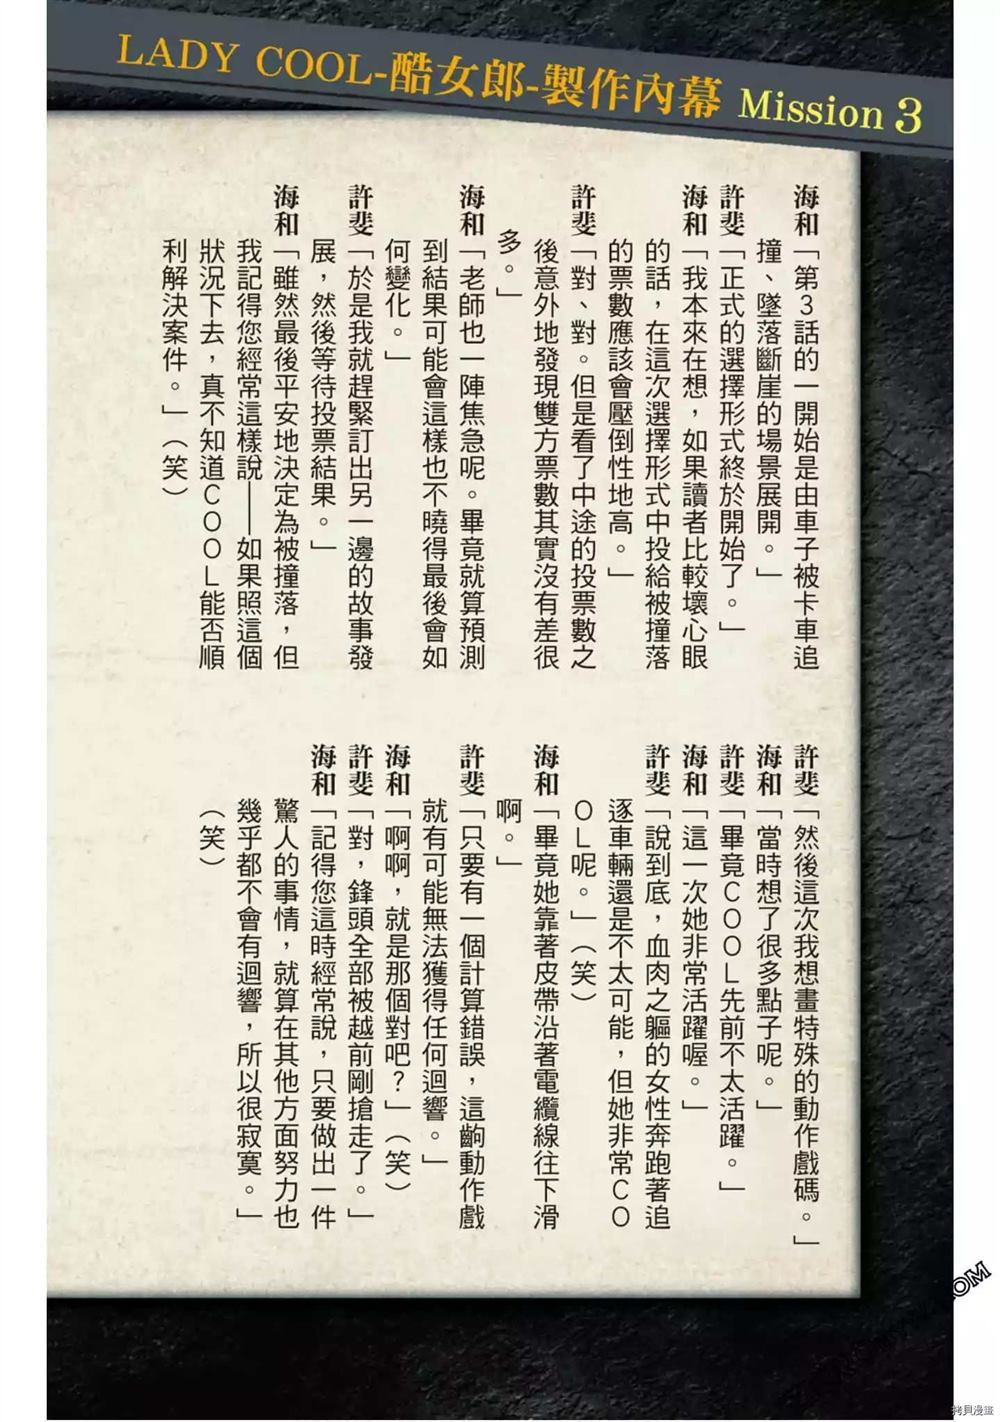 LADY COOL-酷女郎-製作內幕 Mission 3
海和「第３話的一開始是由車子被卡車追
撞、墜落斷崖的場景展開。」
許斐「正式的選擇形式終於開始了。」
海和「我本來在想，如果讀者比較壞心眼
的話，在這次選擇形式中投給被撞落
的票數應該會壓倒性地高。」
許斐「對、對。但是看了中途的投票數之
後意外地發現雙方票數其實沒有差很
多。」
海和「老師也一陣焦急呢。畢竟就算預測
到結果可能會這樣也不曉得最後會如
何變化。」
許斐「於是我就趕緊訂出另一邊的故事發
展，然後等待投票結果。」
海和「雖然最後平安地決定為被撞落，但
我記得您經常這樣說——如果照這個
狀況下去，真不知道ＣＯＯＬ能否順
利解決案件。」（笑）
許斐「然後這次我想畫特殊的動作戲碼。」
海和「當時想了很多點子呢。」
許斐「畢竟ＣＯＯＬ先前不太活躍。」
海和「這一次她非常活躍喔。」
許斐「說到底，血肉之軀的女性奔跑著追
逐車輛還是不太可能，但她非常ＣＯ
ＯＬ呢。」（笑）
海和「畢竟她靠著皮帶沿著電纜線往下滑
啊。」
許斐「只要有一個計算錯誤，這齣動作戲
就有可能無法獲得任何迴響。」
海和「啊啊，就是那個對吧？」（笑）
許斐「對，鋒頭全部被越前剛搶走了。」
海和「記得您這時經常說，只要做出一件
驚人的事情，就算在其他方面努力也
幾乎都不會有迴響，所以很寂寞。」
（笑）
拷貝漫畫